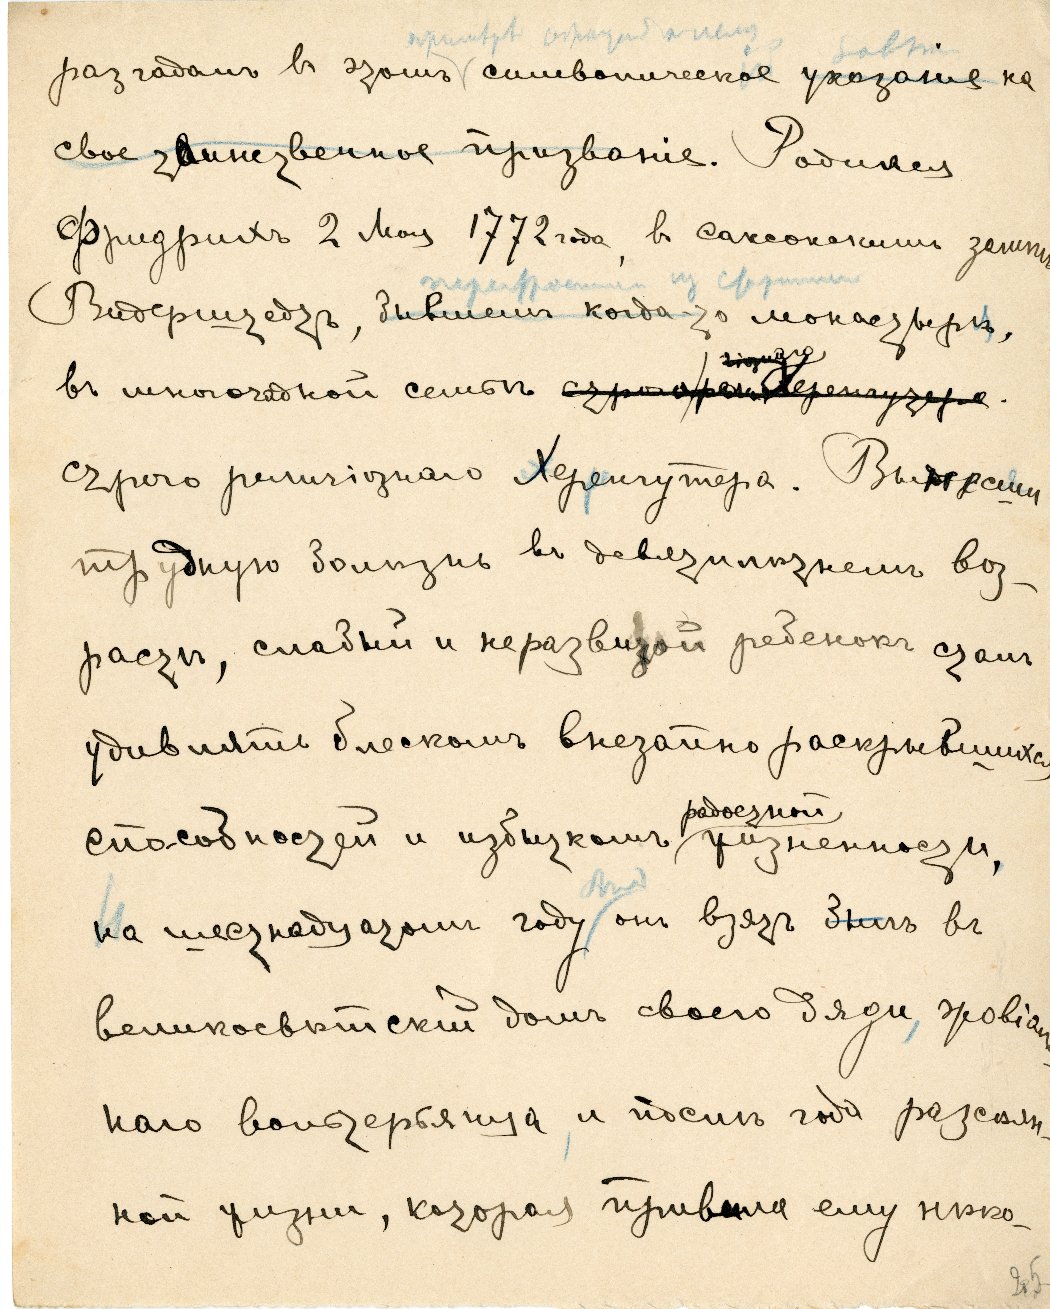 разгадалъ въ этомъ символическое указаніе на
свое таинственное призваніе. Родился
Фридрихъ 2 Мая 1772 года, въ саксонскомъ замкѣ
Видерштедтъ, бывшемъ когда-то монастырѣ,
въ многочадной семьѣ
строго религіознаго Херенгутера. Вынесши
трудную болѣзнь въ девятилѣтнемъ воз-
растѣ, слабый и неразвитой ребенокъ сталъ
удивлять блескомъ внезапно раскрывшихся
радостной
способностей и избыткомъ жизненности,
на шестнадцатомъ году онъ взятъ былъ въ
великосвѣтскій домъ своего дяди,
наго вольтерьянца, и послѣ года разсѣян-
ной жизни, которая привила ему нѣко-
25